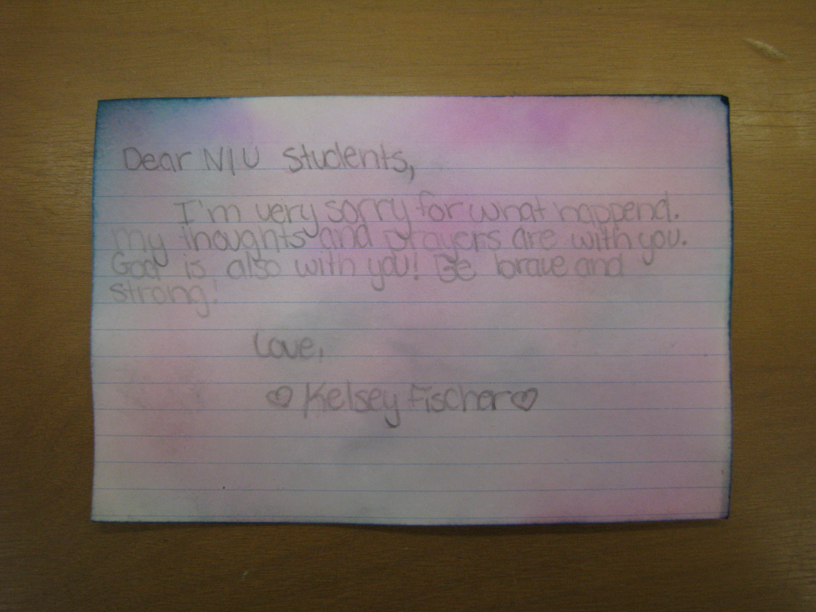 Dear NIU Students,
I'm very sorry for what happend.
My thoughts and prayers are with you.
God is also with you! Be brave and
strong!
Love,
♡ Kelsey Fischer ♡